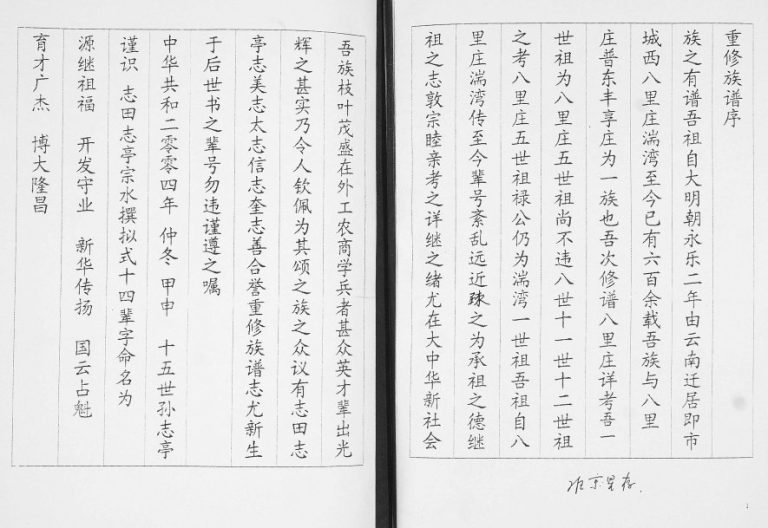 重修族谱序
族之有谱吾祖自大明朝永乐二年由云南迁居即市
城西八里庄湍湾至今已有六百余载吾族与八里
庄普东丰享庄为一族也吾次修谱八里庄详考吾一
世祖为八里庄五世祖尚不违八世十一世十二世祖
之考八里庄五世祖禄公仍为湍湾一世祖吾祖自八
里庄湍湾传至今辈号紊乱远近疎之为承祖之德继
祖之志敦宗睦亲考之详继之绪尤在大中华新社会
吾族枝叶茂盛在外工农商学兵者甚众英才辈出光
辉之甚实乃令人钦佩为其颂之族之众议有志田志
亭志美志太志信志奎志善合誉重修族谱志尤新生
于后世书之辈号勿违谨遵之嘱
中华共和二零零四年 仲冬 甲申 十五世孙志亭
谨识 志田志亭宗水撰拟式十四辈字命名为
源继祖福 开发守业 新华传扬 国云占魁
育才广杰 博大隆昌